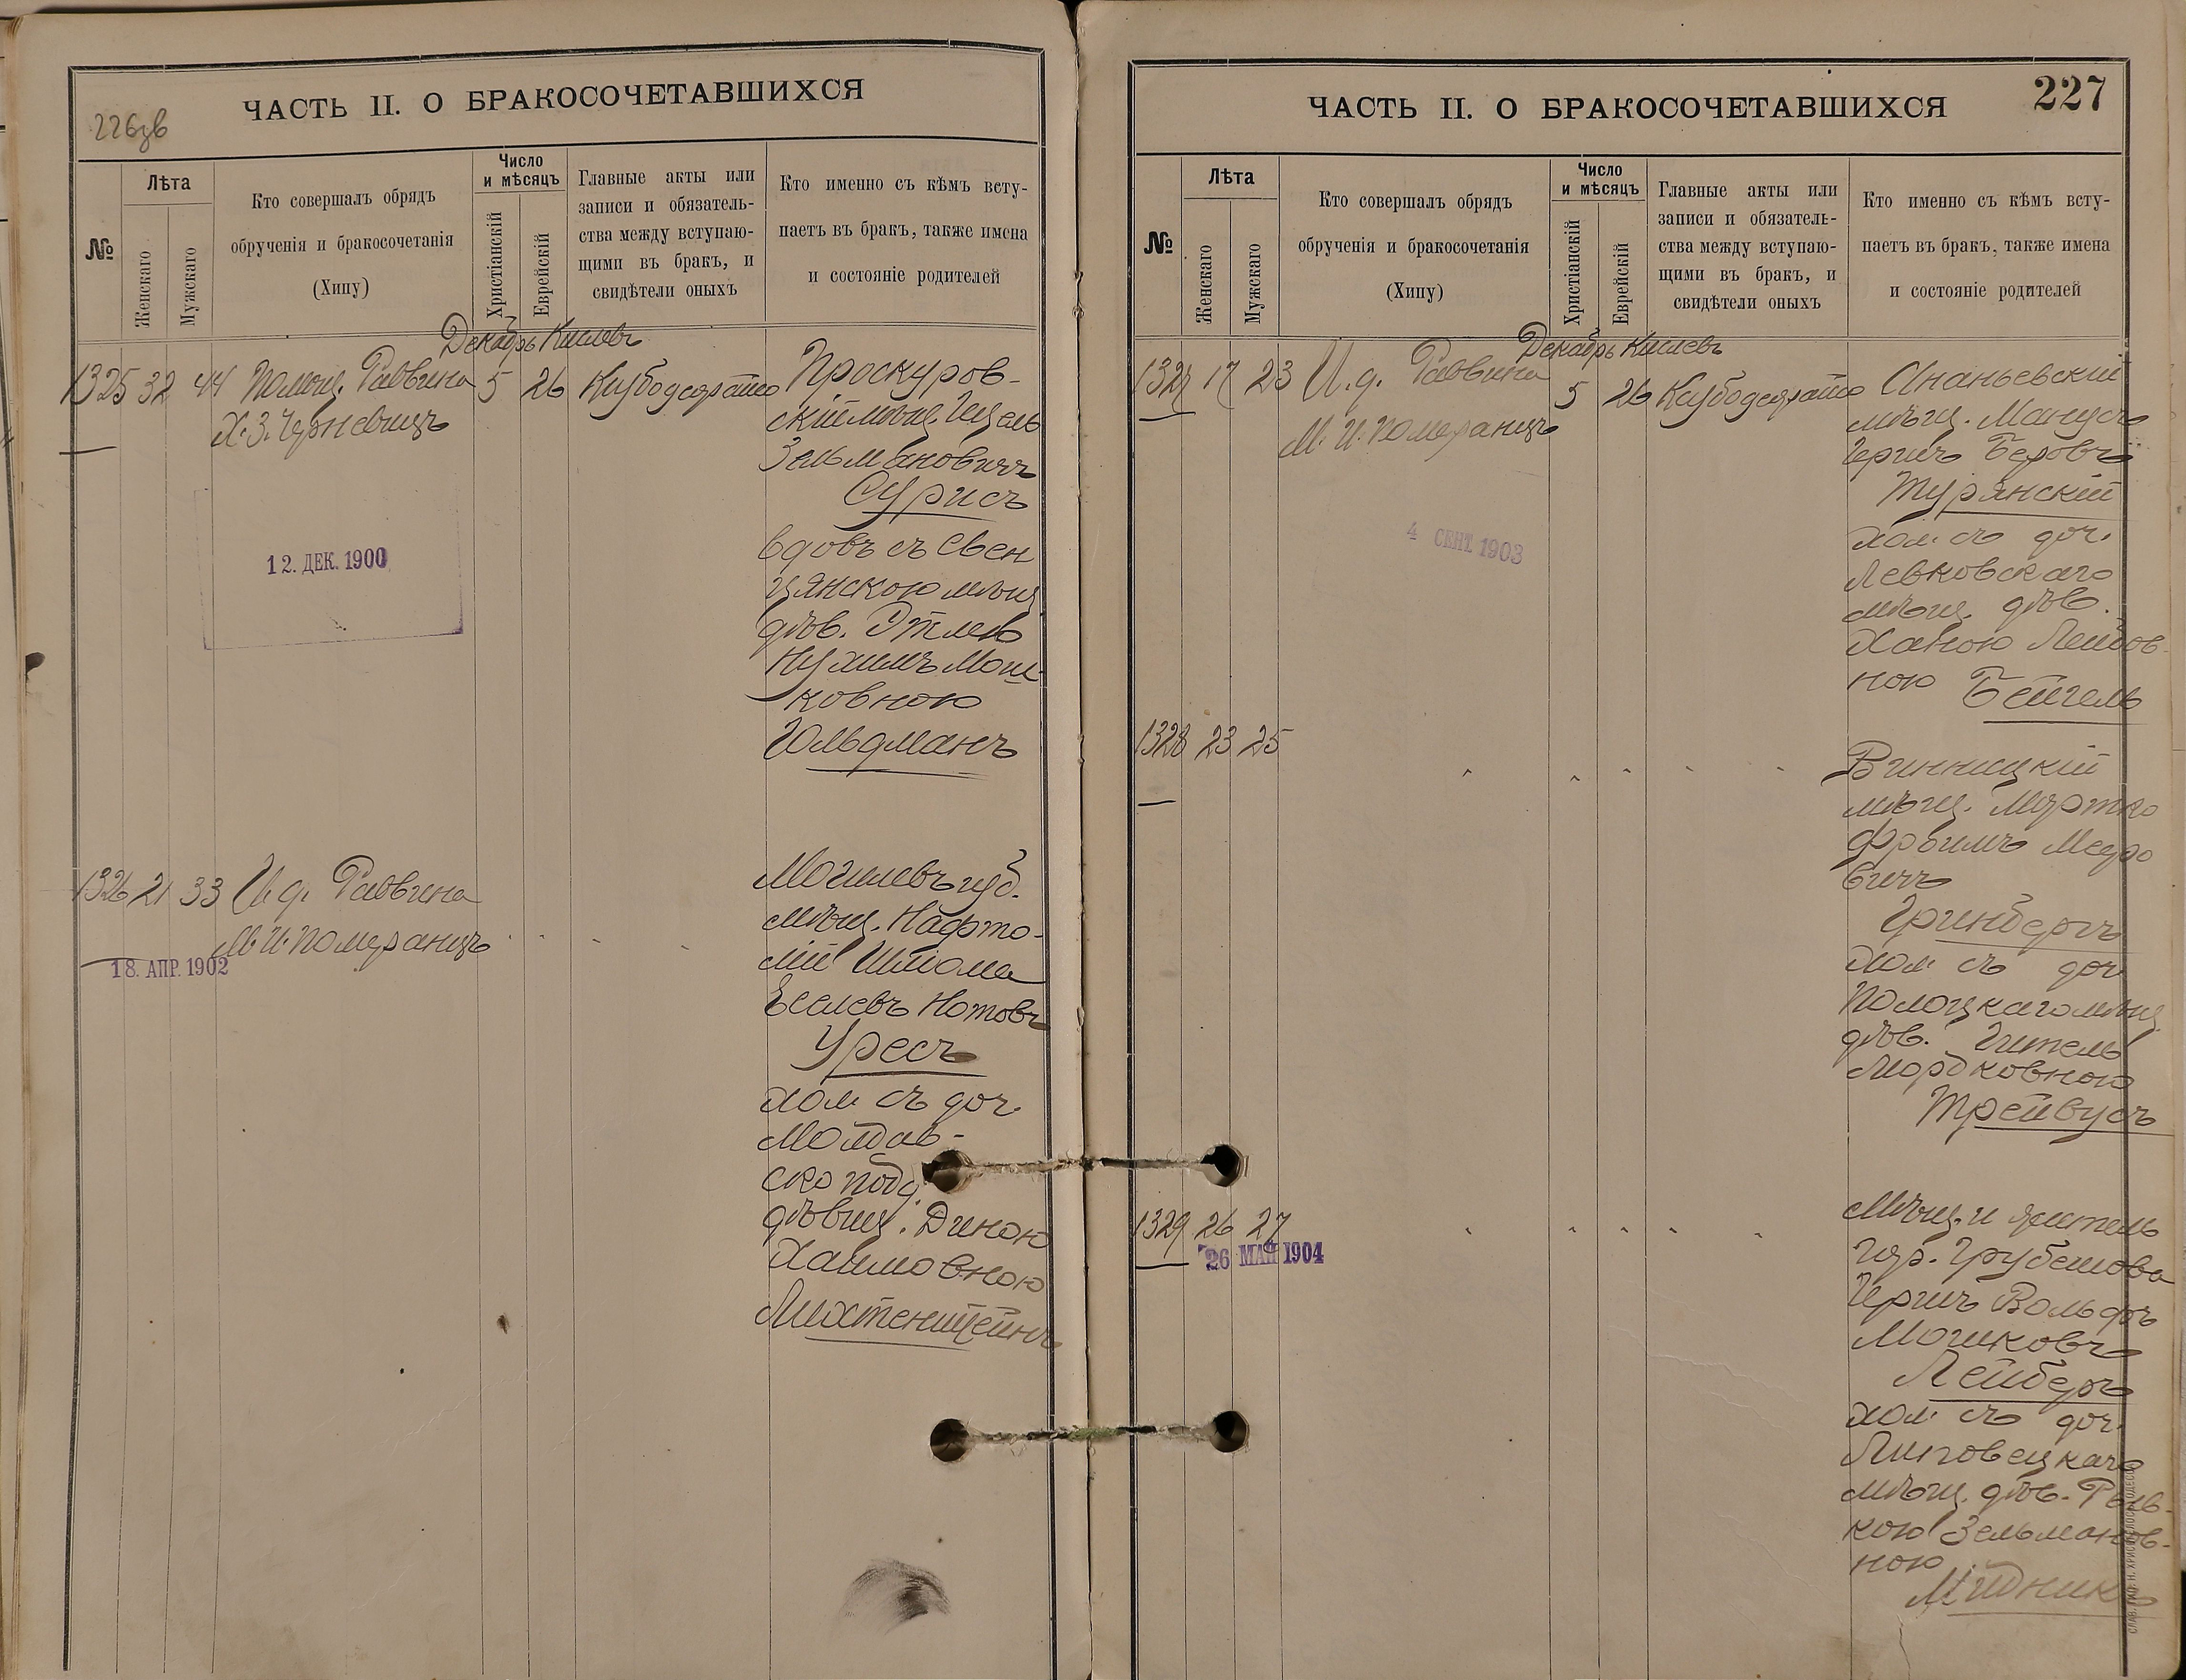 226зв
ЧАСТЬ II. О БРАКОСОЧЕТАВШИХСЯ
№
Лѣта
Женскаго
Мужскаго
Кто совершалъ обрядъ
обрученія и бракосочетанія
(Хипу)
Число
и мѣсяцъ
Христіанскій
Еврейскій
Главные акты или
записи и обязатель-
ства между вступаю-
щими въ бракъ, и
свидѣтели оныхъ
Кто именно съ кѣмъ всту-
паетъ въ бракъ, также имена
и состояніе родителей
Декабрь Кислевъ
1325 32 44 Помощ. Раввина 5 26
Х. З. Черневицъ
Проскуров-
скій мѣщ. Ицель
Зельмановичъ
Сурисъ
вдовъ съ Свен
цянскою мѣщ
дѣв. Этлею
Нухимъ Мош-
ковною
Гольдманъ
12. ДЕК. 1900
1326 21 33 И. д. Раввина
М. И. Померанцъ
18. АПР. 1902
Могилевъ губ.
мѣщ. Нафто-
лій Шліома
Еселевъ Нотовъ
Уресъ
хол. съ доч.
Молдав-
ско подд.
дѣвиц. Диною
Хаимовною
Лихтенштейнъ
227
ЧАСТЬ II. О БРАКОСОЧЕТАВШИХСЯ
№
Лѣта
Женскаго
Мужскаго
Кто совершалъ обрядъ
обрученія и бракосочетанія
(Хипу)
Число
и мѣсяцъ
Христіанскій
Еврейскій
Главные акты или
записи и обязатель-
ства между вступаю-
щими въ бракъ, и
свидѣтели оныхъ
Кто именно съ кѣмъ всту-
паетъ въ бракъ, также имена
и состояніе родителей
Декабрь Кислевъ
1327 17 23 И. д. Раввина 5 26
М. И. Померанцъ
4 СЕНТ. 1903
Ананьевскій
мѣщ. Манусъ
Гершъ Беровъ
Турянскій
хол. съ доч.
Левковскаго
мѣщ. дѣв.
Ханою Лейбов-
ною Бейгель
1328 23 25
Винницкій
мѣщ. Мортко
Фроимъ Мееро
вичъ
Гринбергъ
хол. съ доч
Полоцкаго мѣщ.
дѣв. Гитель
Мордковною
Трейвусъ
1329 26 27
26 МАЯ 1904
Мѣщ. и житель
гор. Грубешова
Гершъ Вольфъ
Мошковъ
Лейберъ
хол. съ доч.
Липовецкаго
мѣщ. дѣв. Рыв-
кою Зельманов-
ною
Мидникъ